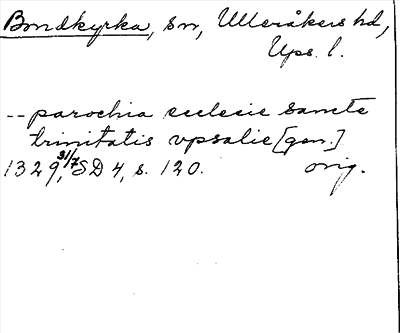 Bondkyrka, sn, Ulleråkers hd,
Ups. l.
-- parochia ecclesie sancte
trinitatis vpsalie [gen.]
1329 31/7, SD 4, s. 120. orig.